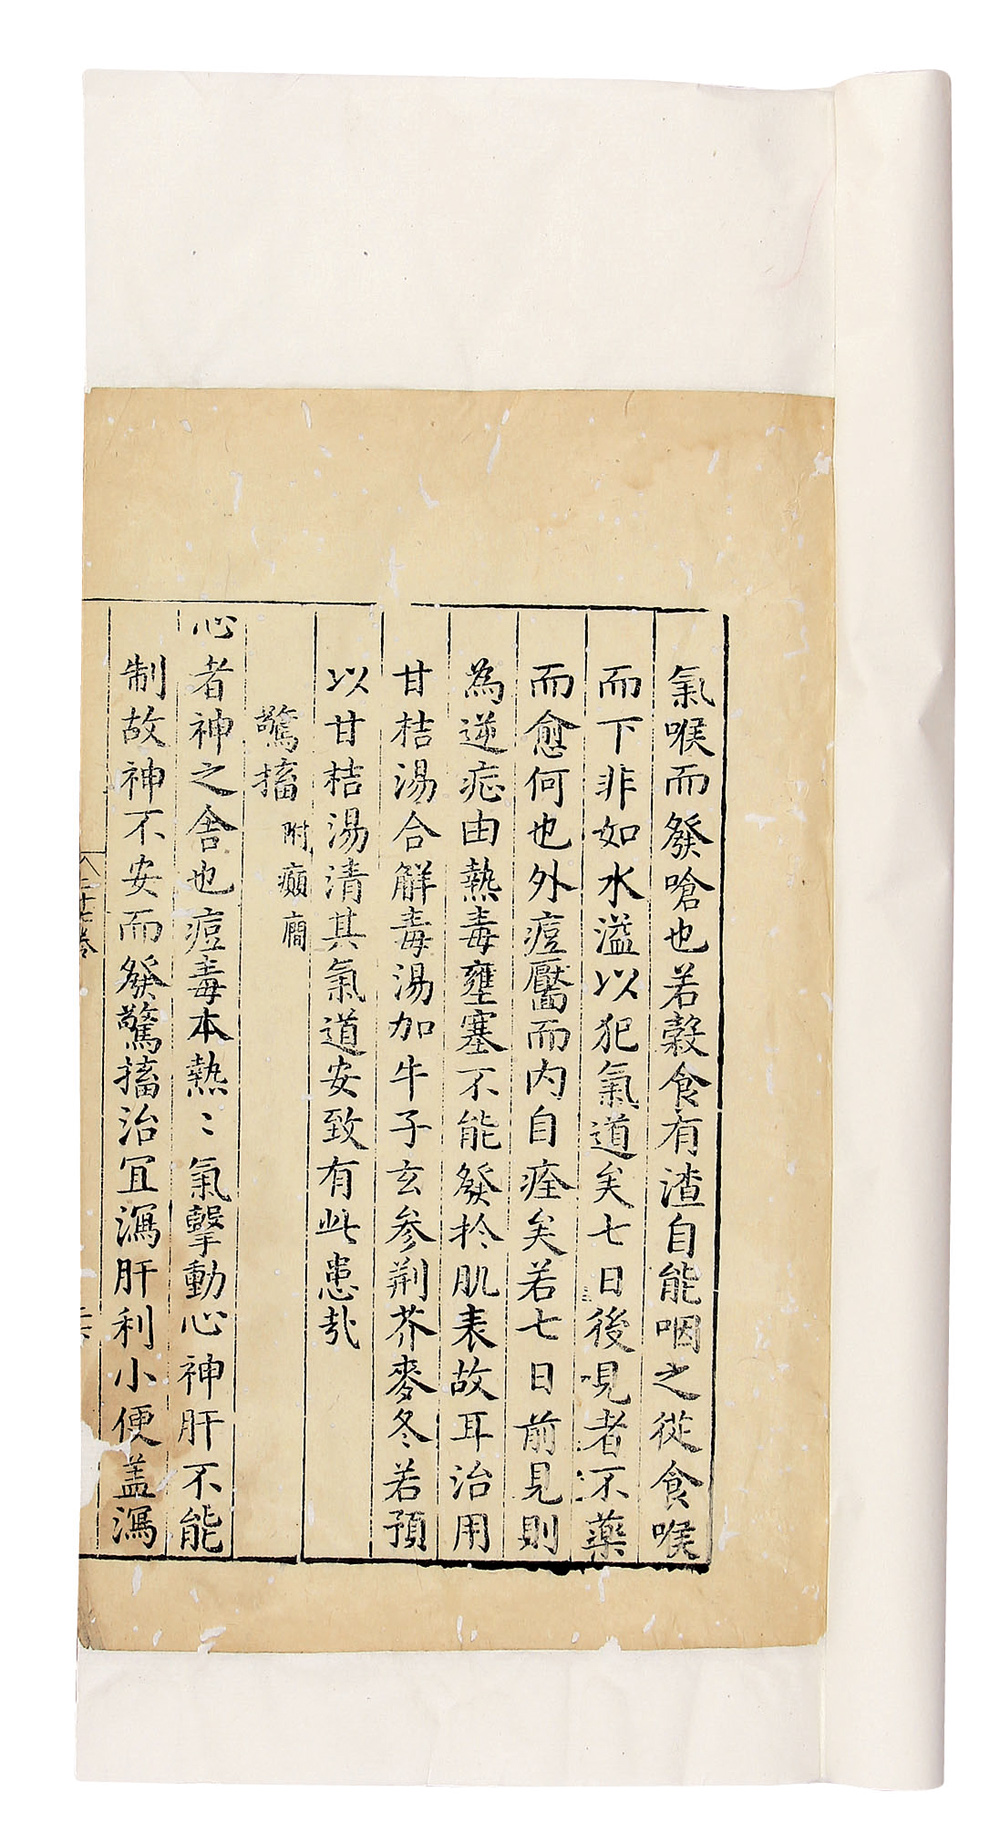 氣喉而發嗆也若穀食有渣自能咽之從食喉
而下非如水溢以犯氣道矣七日後見者不藥
而愈何也外痘靨而内自痊矣若七日前見則
為逆症由熱毒壅塞不能發扵肌表故耳治用
甘桔湯合解毒湯加牛子玄参荆芥麥冬若預
以甘桔湯清其氣道安致有此患㢤
驚搐附癲癇
心者神之舍也痘毒本熱〻氣擊動心神肝不能
制故神不安而發驚搐治冝瀉肝利小便盖瀉
二十七卷